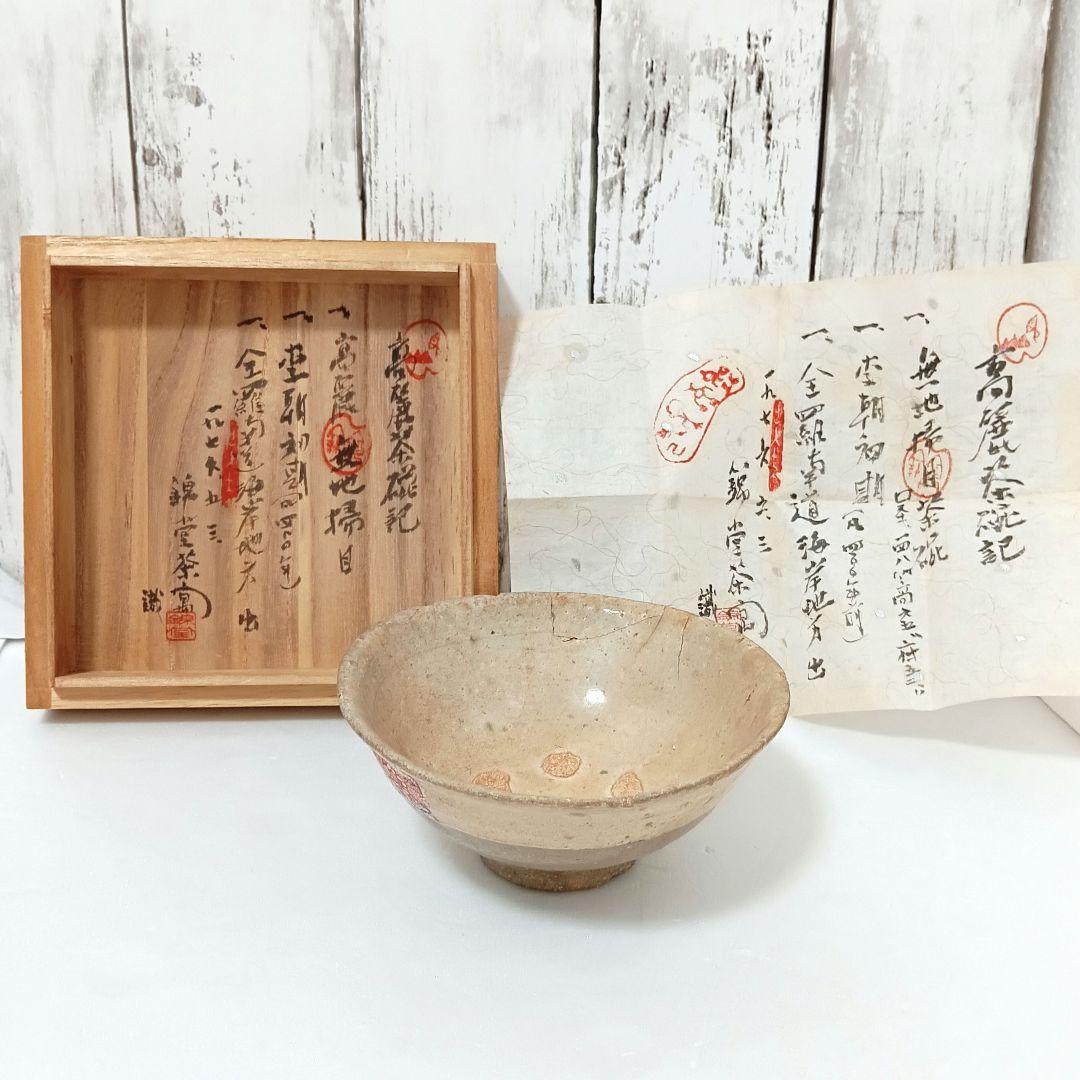 高麗茶碗記
一、高麗無地掃目
一、李朝初期(凡四百年)
一、全羅南道海岸地方出
一九七六、五、三、
錦堂茶寓
識
高麗茶碗記
一、無地掃目茶碗
一、李朝初期(凡四百年前)
一、全羅南道海岸地方出
一九七六、六、三
錦堂茶寓
識